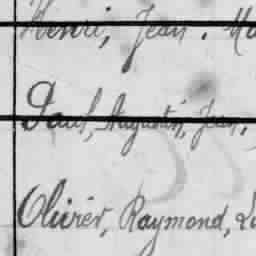 Henri, Jean. Ma
Paul, Augustin, Jean.
Olivier, Raymond, Lu